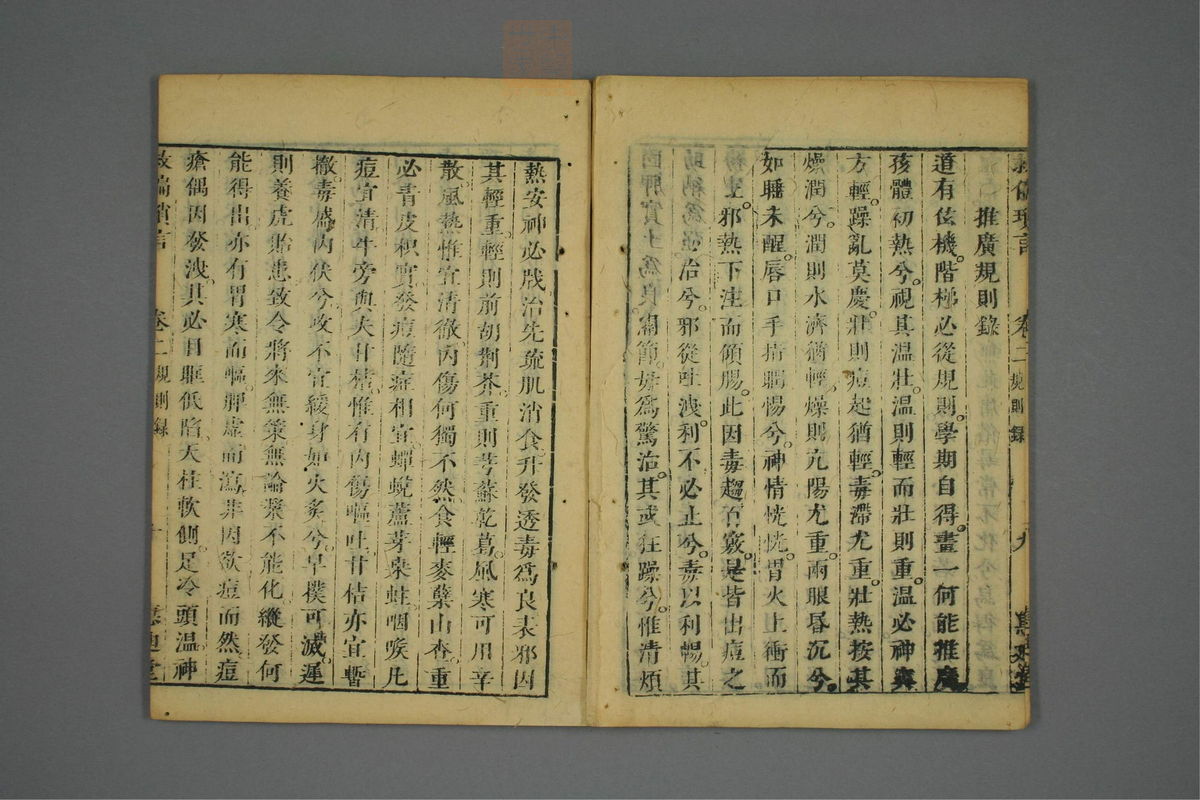 救偏瑣言 卷二 規則錄 九
推廣規則錄
道有伭機。階梯必從規則。學期自得。畫一何能推廣。
孩體初熱兮。視其温壯。温則輕而壯則重。温必神爽
方輕。躁亂莫慶。壯則痘起猶輕。毒滯尤重。壯熱按其
燥潤兮。潤則水濟猶輕。燥則亢陽尤重。兩眼昏沉兮。
如睡未醒。唇口手搐瞤惕兮。神情恍恍。胃火上衝而
邪熱下注而傾腸。此因毒趨百竅。是皆出痘之
治兮。邪從吐洩。利不必止兮。毒以利暢。其
為驚治。其或狂躁兮。惟清煩
熱安神必戕治先疏肌消食升發透毒為良表邪因
其輕重。輕則前胡荆芥。重則芎蘇乾葛。風寒可用辛
散。風熱惟宜清徹。內傷何獨不然。食輕麥蘗山查。重
必青皮枳實。發痘隨症相宜。蟬蛻蘆芽桑蛀。咽喉凡
痘宜清。牛旁與夫甘桔。惟有內傷嘔吐。甘桔亦宜暫
撤。毒盛內伏兮。攻不宜緩。身如火炙兮。早撲可滅。遲
則養虎貽患。致令將來無策。無論漿不能化。縱發何
能得出。亦有胃寒而嘔。脾虛而瀉。非因欲痘而然。痘
瘡偶因發洩。其必目眶低陷。天柱軟側。足冷頭温。神
救偏瑣言 卷二 規則錄 十